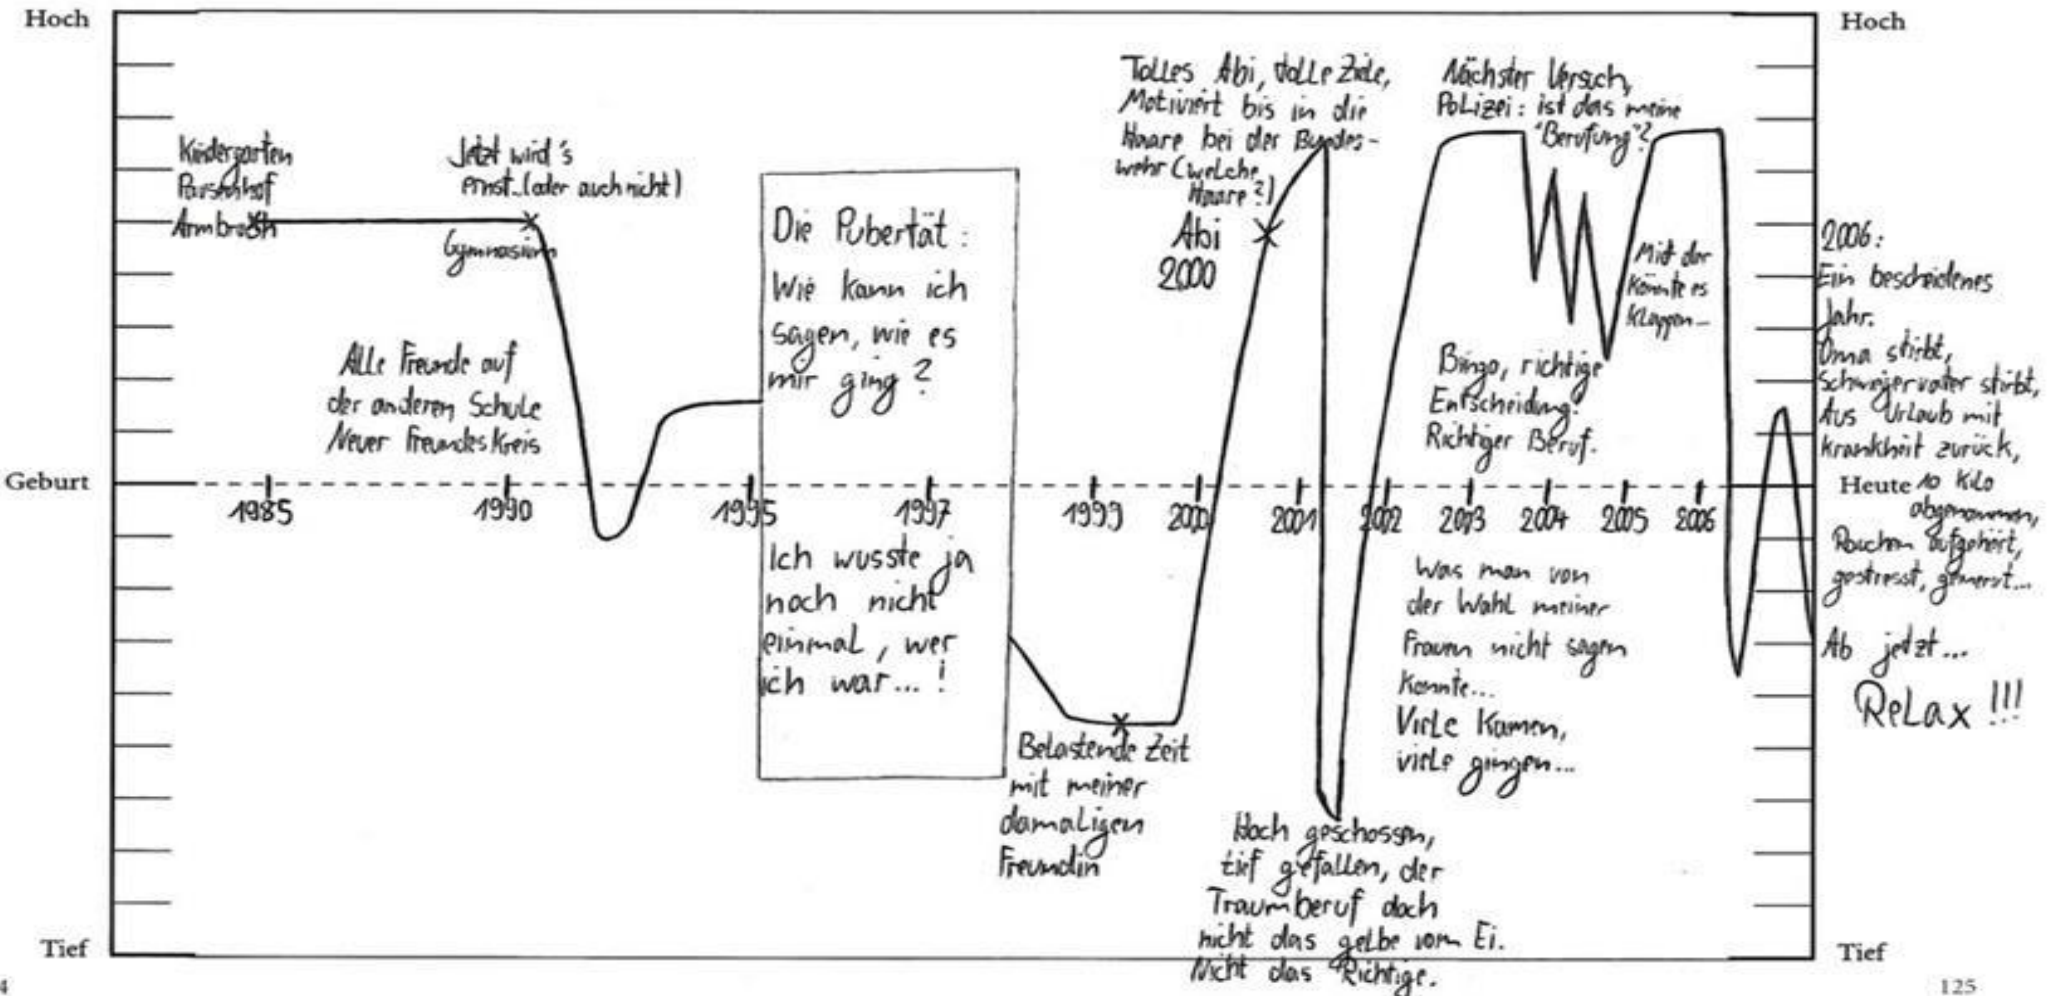 Hoch
Hoch
Kindergarten
Armbrosh
Jetzt wird's
ernst...(oder auch nicht)
Gymnasium
Alle Freunde auf
der anderen Schule
Neuer Freundeskreis
Die Pubertät:
Wie kann ich
sagen, wie es
mir ging?
Ich wusste ja
noch nicht
einmal, wer
ich war...!
Belastende Zeit
mit meiner
damaligen
Freundin
Tolles Abi, tolle Ziele,
Motiviert bis in die
Haare bei der Bundes-
wehr (welche
Haare?)
Abi
2000
Hoch geschossen,
tief gefallen, der
Traumberuf doch
nicht das gelbe vom Ei.
Nicht das Richtige.
Nächster Versuch,
Polizei: ist das meine
"Berufung"?
Bingo, richtige
Entscheidung.
Richtiger Beruf.
Mit der
könnte es
klappen...
Was man von
der Wahl meiner
Frauen nicht sagen
konnte...
Viele kamen,
viele gingen...
2006:
Ein bescheidenes
Jahr.
Oma stirbt,
Schwiegervater stirbt,
Aus Urlaub mit
Krankheit zurück,
10 Kilo
abgenommen,
Rauchen aufgehört,
gestresst, genervt...
Ab jetzt...
Relax!!!
Geburt
1985
1990
1995
1997
1999
2000
2001
2002
2003
2004
2005
2006
Heute
Tief
Tief
4
125